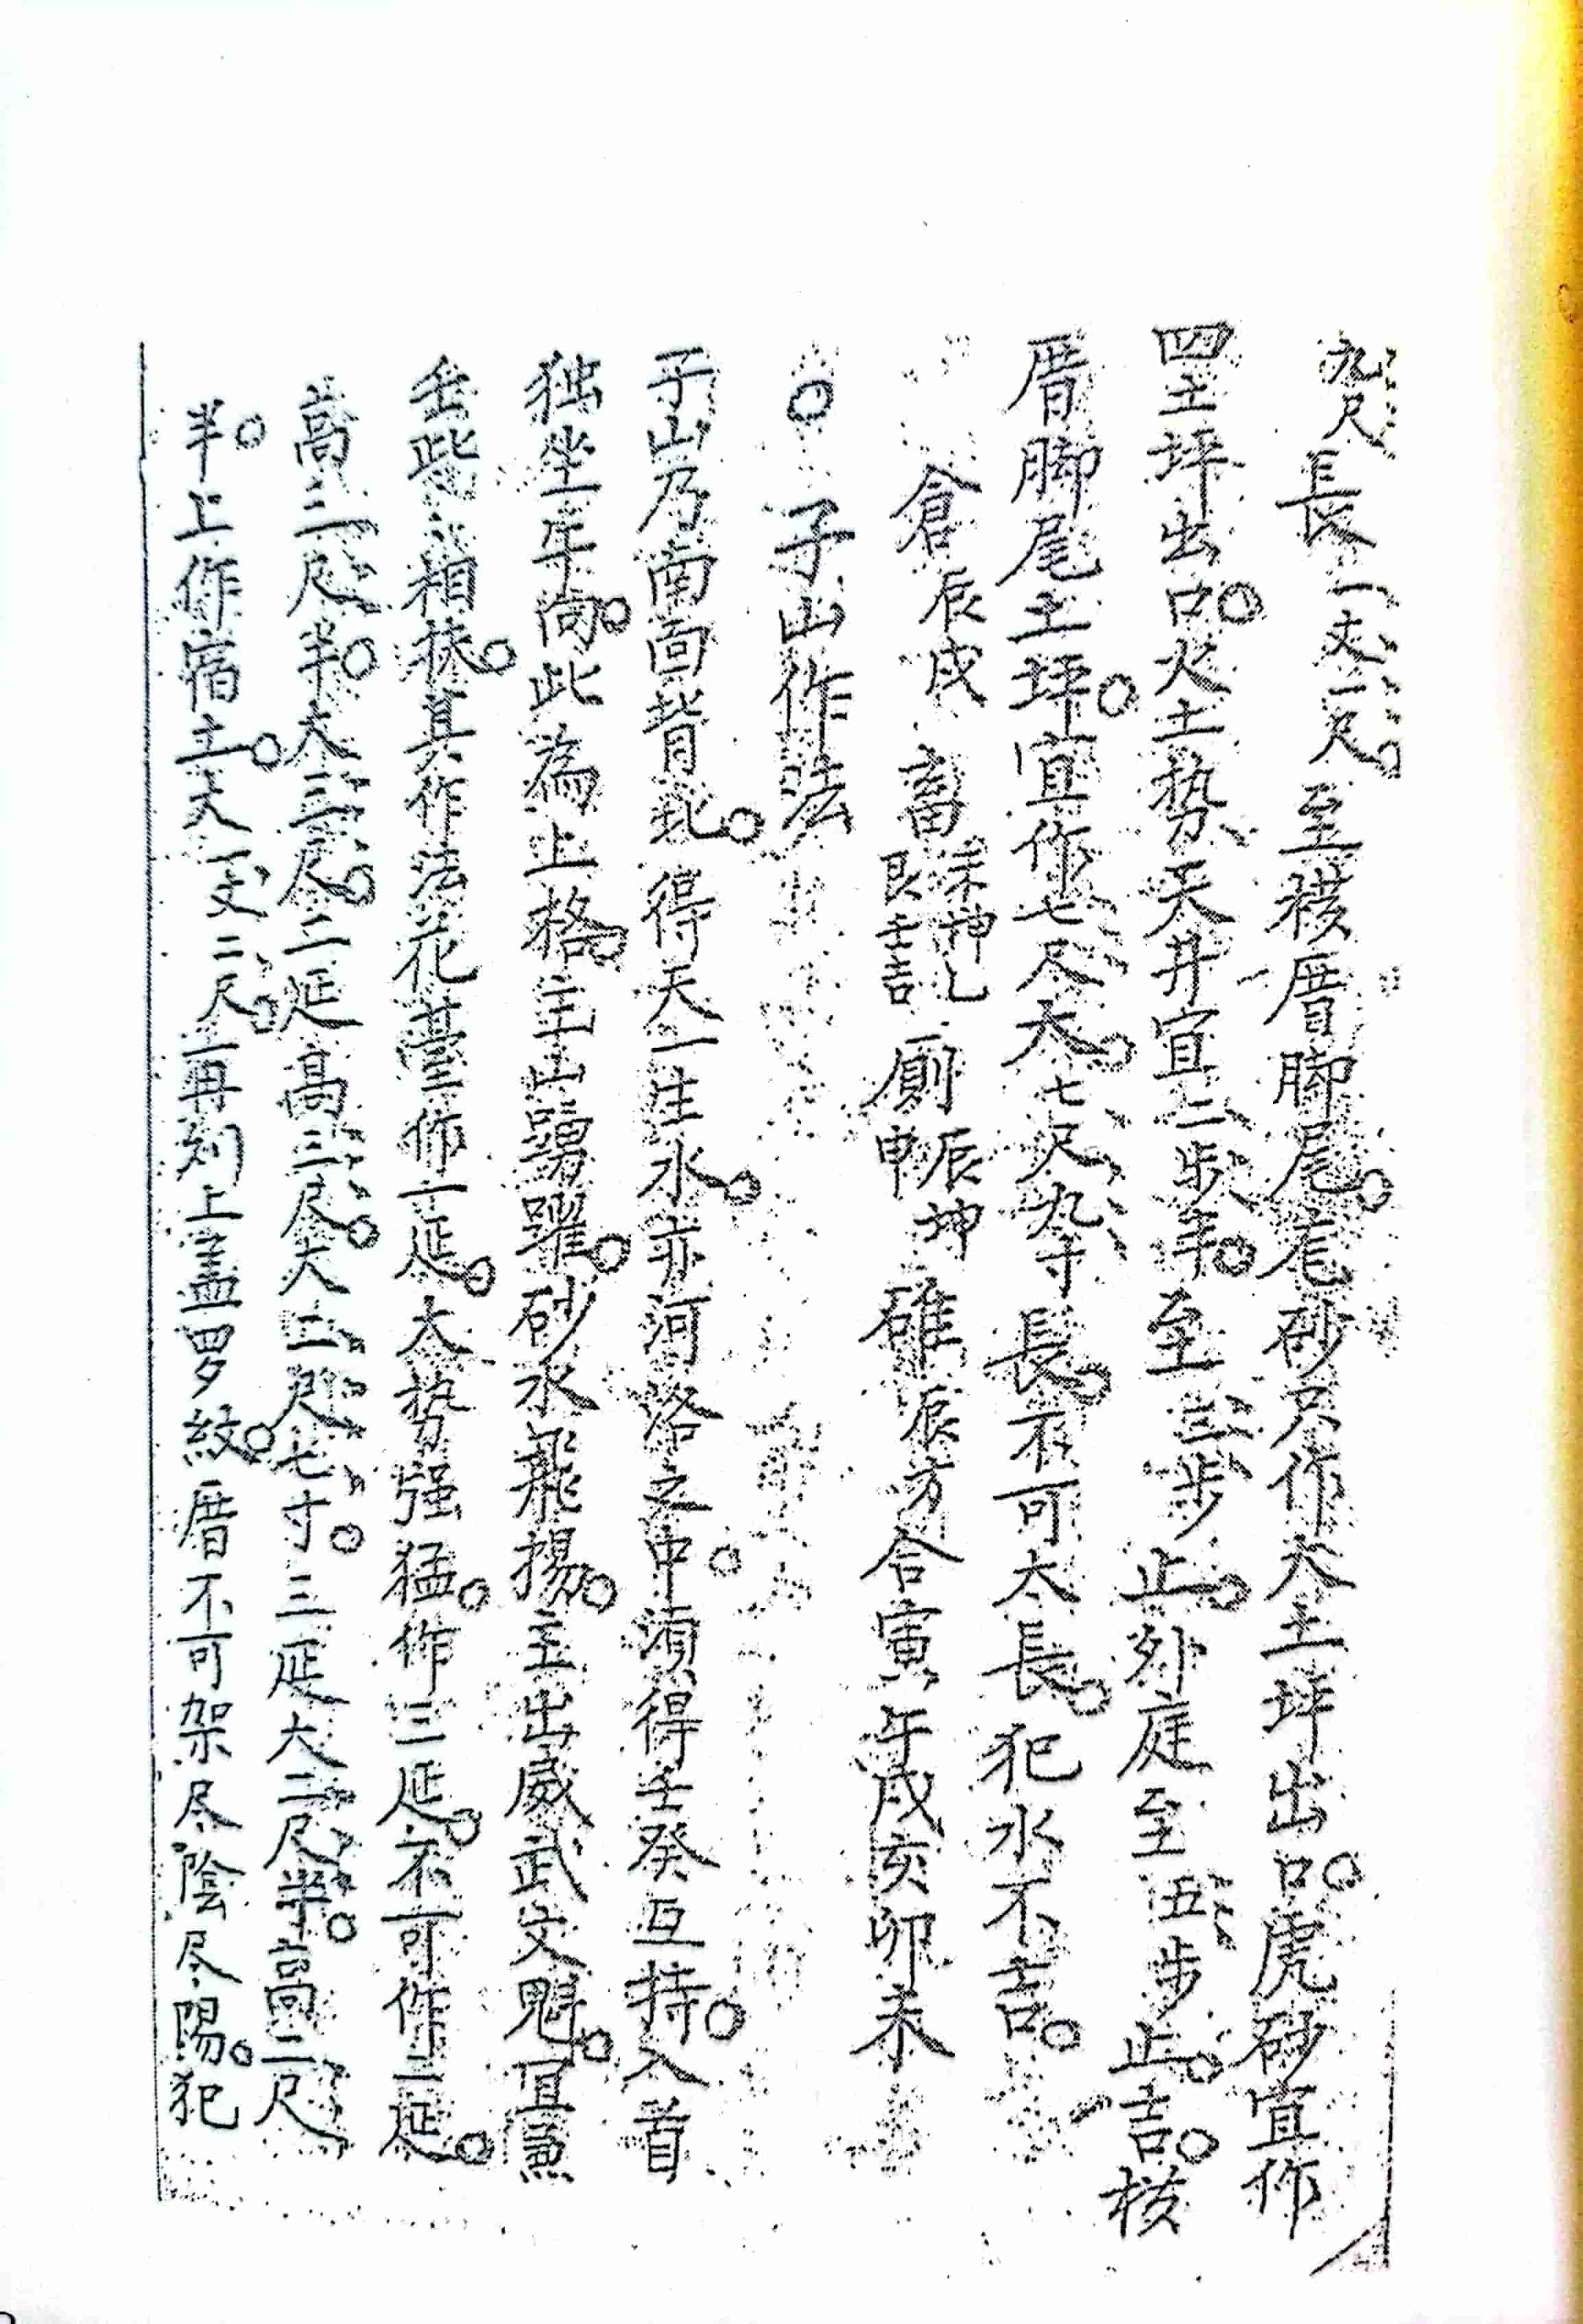 九尺長一丈二尺。至後厝脚尾。左砂只作大土坪出口。虎砂宜作
四土坪出口。火土势天井宜二步半。至三步止。外庭至五步止。吉。核
厝脚尾土坪。宜作七尺大。七尺九寸長。不可太長。犯水不吉。
倉辰戌 畜未坤乚艮壬吉 廁辰坤申 碓辰方合寅午戌亥卯未
○子山作法
子山乃南面背北。得天一生水。亦河洛之中。須得壬癸互持。入首
独坐午向。此為止格。主山踴躍。砂水飛揚。主出威武文魁。宜兼
壬。相扶。其作法花臺作一延。大势强猛。作三延。不可作二延。
高三尺半。大三尺。二延高三尺。大二尺七寸。三延大二尺半。高二尺
半。上作宿土。大一丈二尺。再刈上盖罗紋。厝不可架尽陰尽陽。犯